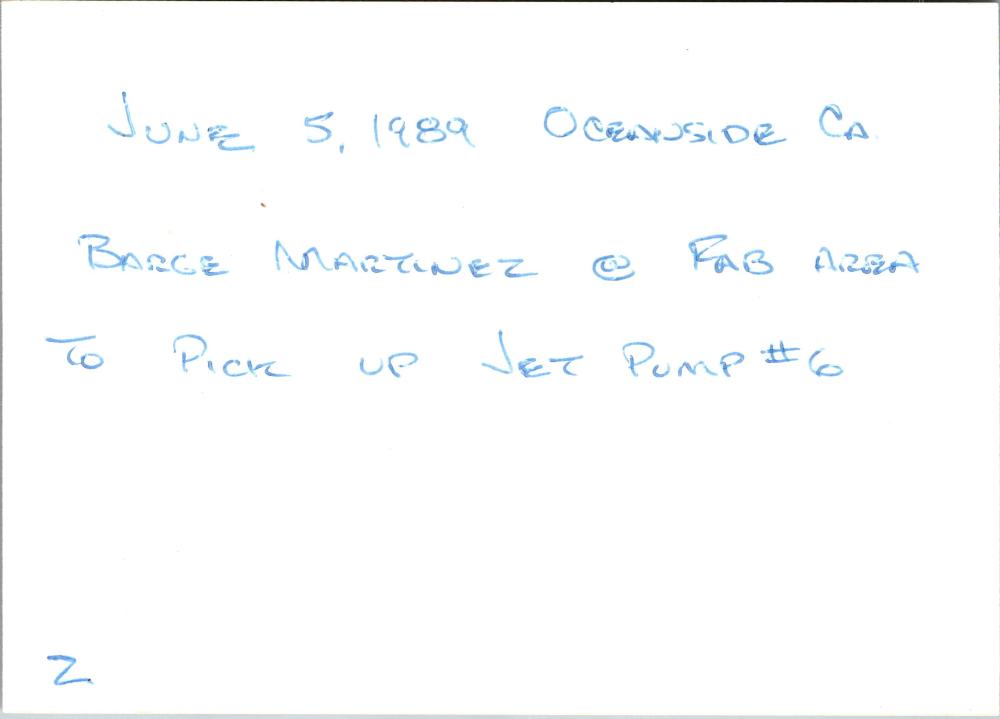 JUNE 5, 1989 OCEANSIDE CA.
BARGE MARTINEZ @ FAB AREA
TO PICK UP JET PUMP #6
2